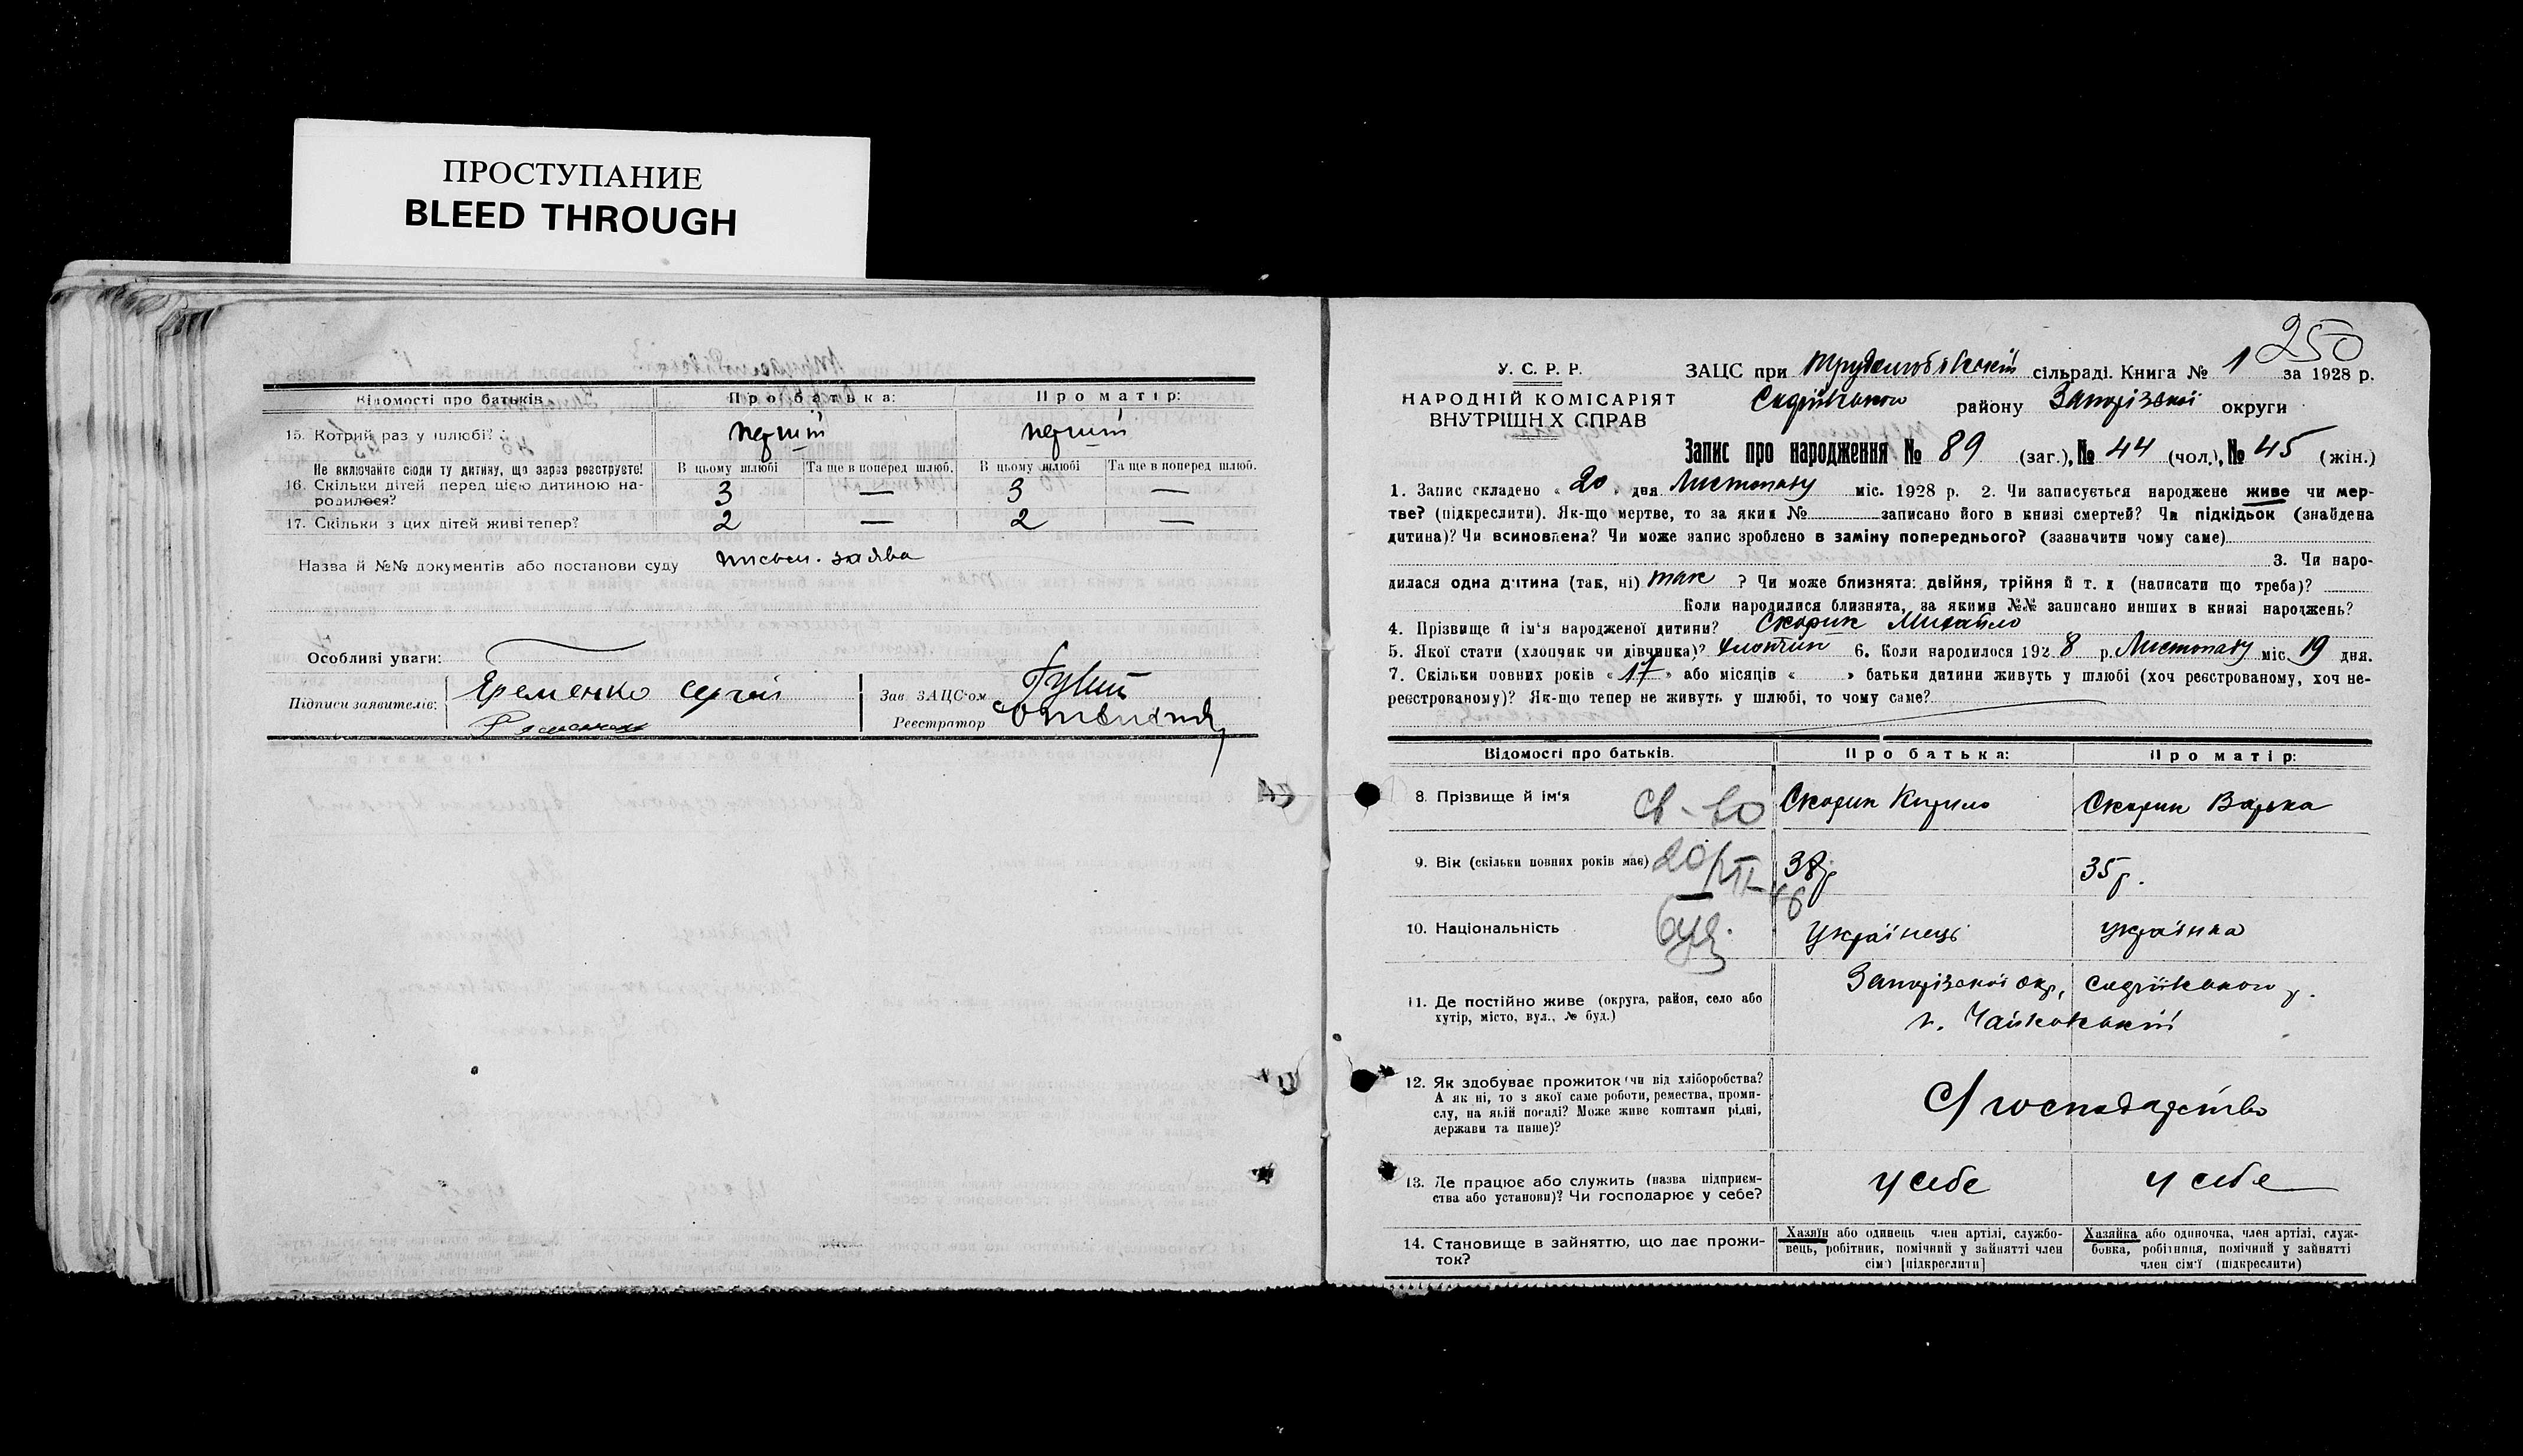 ПРОСТУПАНИЕ
BLEED THROUGH
Відомості про батьків
Про батька:
Про матір:
15. Котрий раз у шлюбі?
перший
перший
Не включайте сюди ту дитину, що зараз реєструєте!
В цьому шлюбі
Та ще в поперед шлюб.
В цьому шлюбі
Та ще в поперед шлюб.
16. Скільки дітей перед цією дитиною на-
родилося?
3 — 3 —
17. Скільки з цих дітей живі тепер?
2 — 2 —
Назва й №№ документів або постанови суду
письм. заява
Особливі уваги:
Підписи заявителів:
Яременко Сергій
Зав ЗАЦС-ом
Реєстратор
250
У. С. Р. Р.
НАРОДНІЙ КОМІСАРІЯТ
ВНУТРІШНІХ СПРАВ
ЗАЦС при Трудолюбівській сільраді. Книга № 1 за 1928 р.
району Запорізької округи
Запис про народження № 89 (заг.), № 44 (чол.), № 45 (жін.)
1. Запис складено « 20 » дня Листопаду міс. 1928 р. 2. Чи записується народжене живе чи мер-
тве? (підкреслити). Як-що мертве, то за яким № записано його в книзі смертей? Чи підкідьок (знайдена
дитина)? Чи всиновлена? Чи може запис зроблено в заміну попереднього? (зазначити чому саме)
3. Чи наро-
дилася одна дитина (так, ні) так ? Чи може близнята: двійня, трійня й т. д (написати що треба)?
Коли народилися близнята, за якими №№ записано инших в книзі народжень?
4. Прізвище й ім'я народженої дитини? Скорик Михайло
5. Якої стати (хлопчик чи дівчинка)? хлопчик 6. Коли народилося 1928 р. Листопаду міс. 19 дня.
7. Скільки повних років « 17 » або місяців « » батьки дитини живуть у шлюбі (хоч реєстрованому, хоч не-
реєстрованому)? Як-що тепер не живуть у шлюбі, то чому саме?
Відомості про батьків.
Про батька:
Про матір:
8. Прізвище й ім'я
св-во
Скорик Кирило
Скорик Варка
9. Вік (скільки повних років має)
38 р
35 р.
10. Національність
Українець
українка
11. Де постійно живе (округа, район, село або
хутір, місто, вул., № буд.)
Запорізької окр,
12. Як здобуває прожиток (чи від хліборобства?
А як ні, то з якої саме роботи, ремества, проми-
слу, на якій посаді? Може живе коштами рідні,
держави та инше)?
с/господарство
13. Де працює або служить (назва підприєм-
ства або установи)? Чи господарює у себе?
у себе
у себе
14. Становище в зайняттю, що дає прожи-
ток?
Хазяїн або одинець член артілі, службо-
вець, робітник, помічний у зайнятті член
сім'ї [підкреслити]
Хазяйка або одиночка, член артілі, служ-
бовка, робітниця, помічний у зайнятті
член сім'ї (підкреслити)